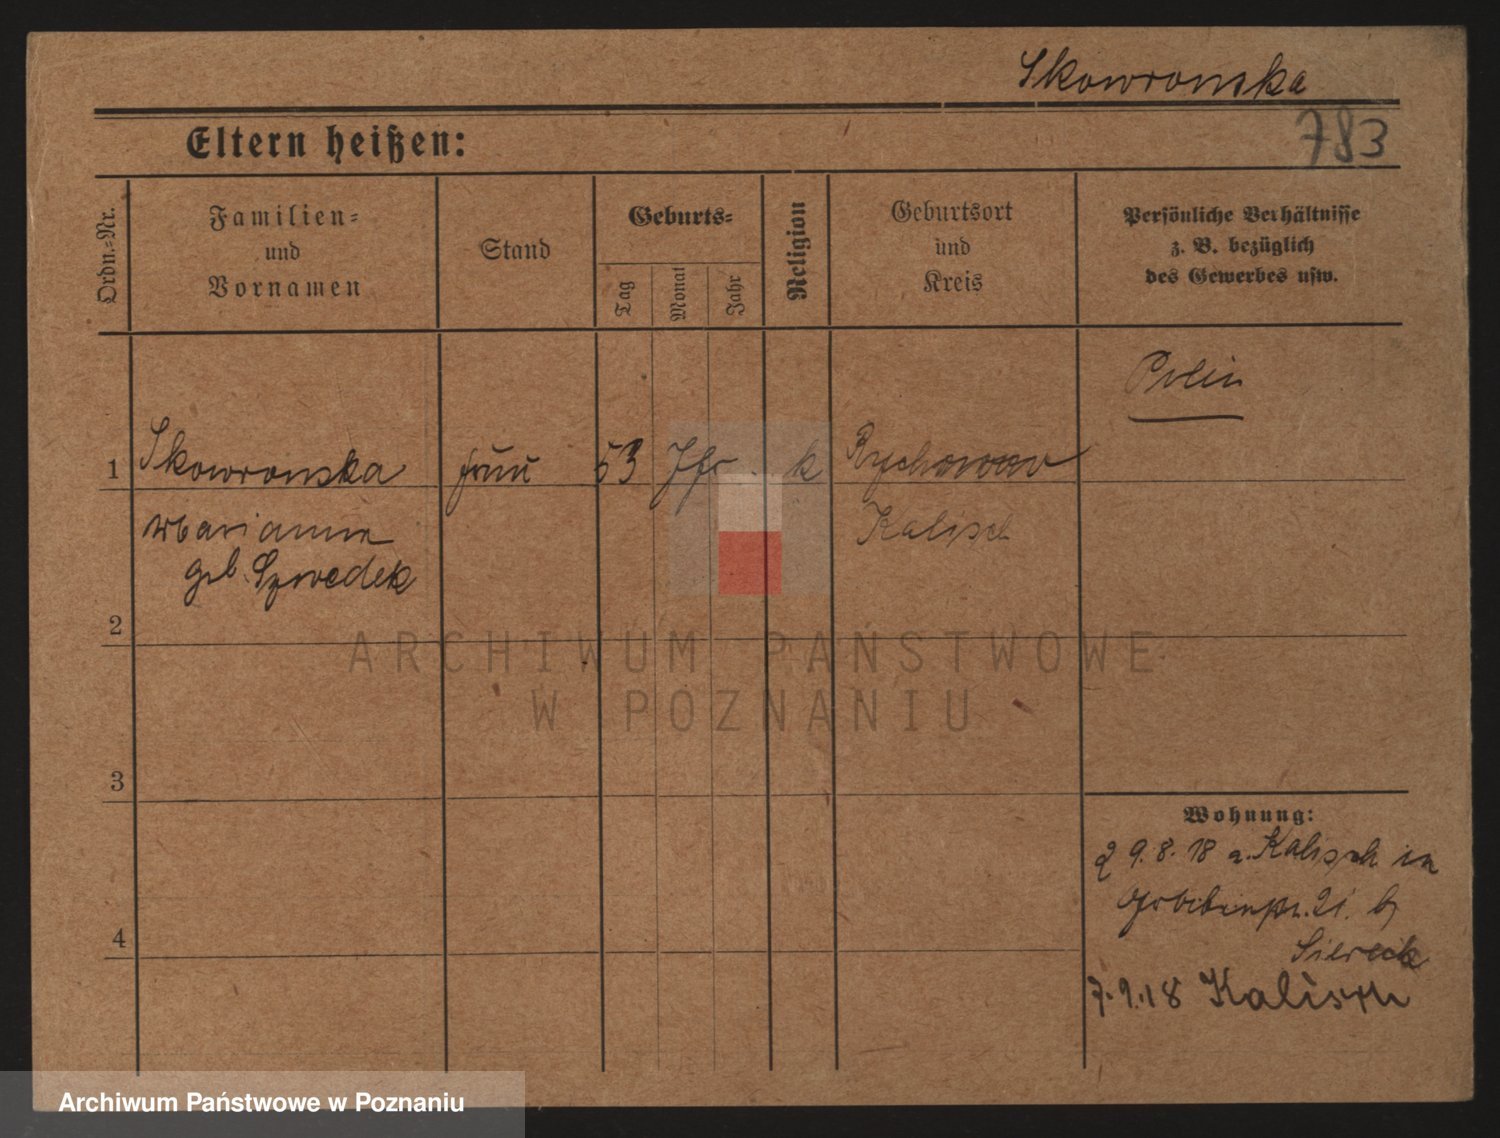 Skowronska
783
Eltern heißen:
Ordn.-Nr.
Familien-
und
Vornamen
Stand
Geburts-
Tag
Monat
Jahr
Religion
Geburtsort
und
Kreis
Persönliche Verhältnisse
z. B. bezüglich
des Gewerbes usw.
Polin
1 Skowronska frau 53 Jhr. k
Marianna Kalisch
geb. Szwedek
2
3
4
Wohnung:
29.8.18 a. Kalisch in
21. b/
Siereck
7.9.18 Kalisch
ARCHIWUM PAŃSTWOWE
W POZNANIU
Archiwum Państwowe w Poznaniu